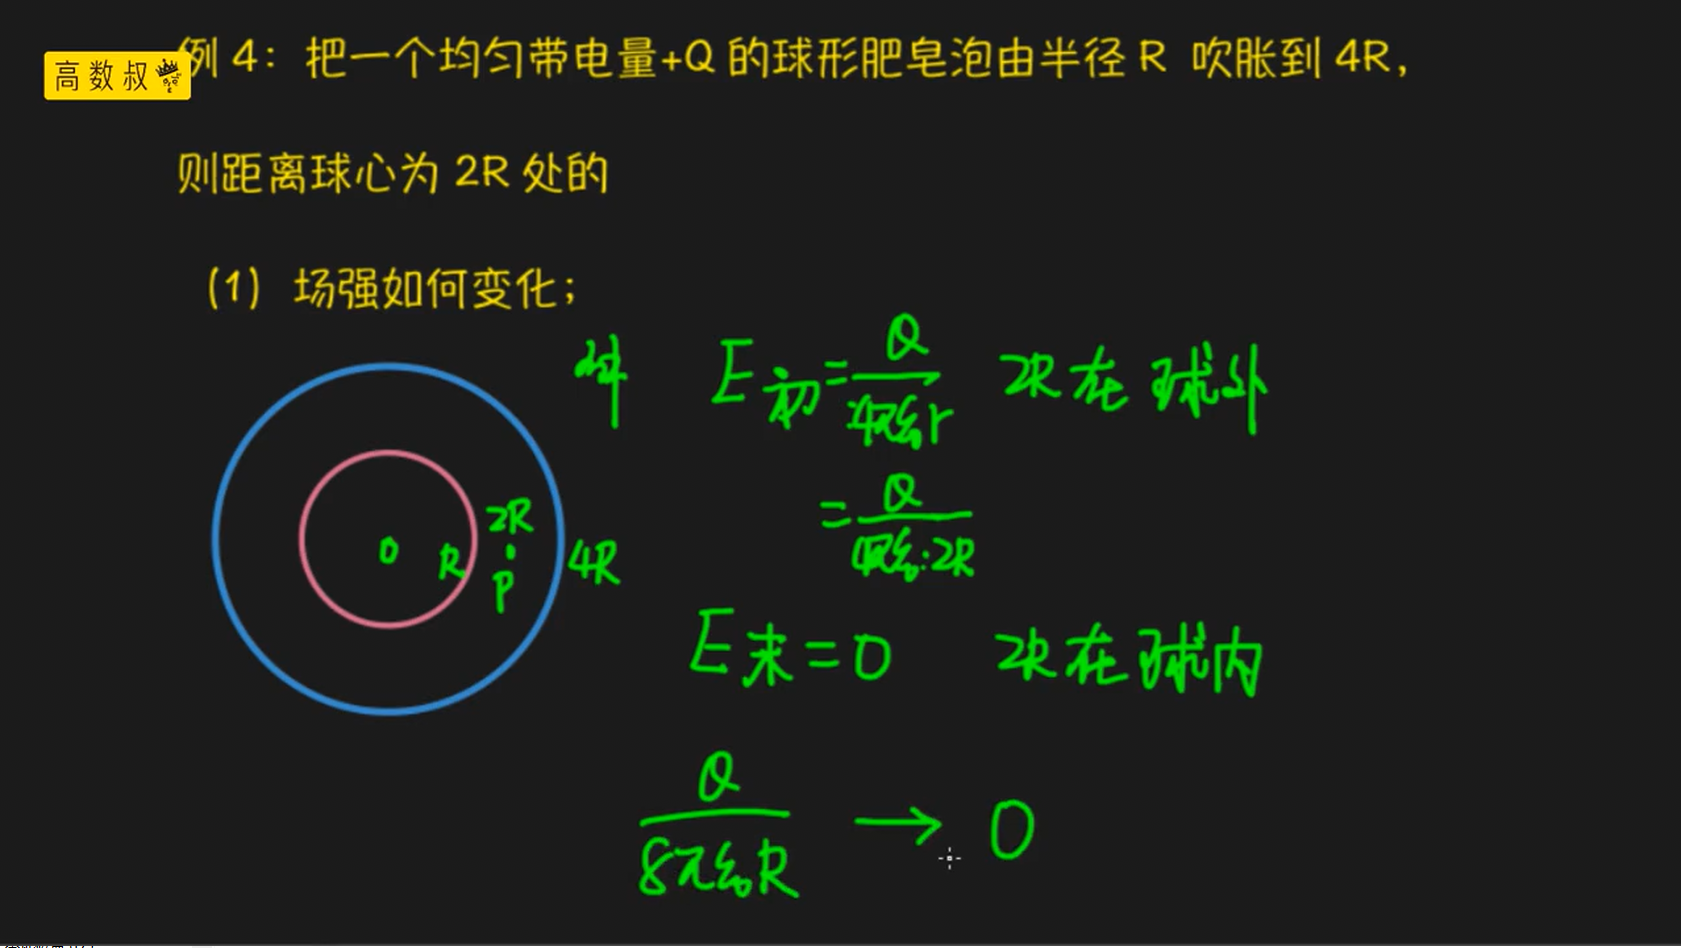 高数叔
例 4：把一个均匀带电量+Q 的球形肥皂泡由半径 R 吹胀到 4R，
则距离球心为 2R 处的
（1）场强如何变化；
E初=Q/4πε₀r 2R在球外
=Q/4πε₀·2R
2R
O R P 4R
E末=0 2R在球内
Q/8πε₀R → 0